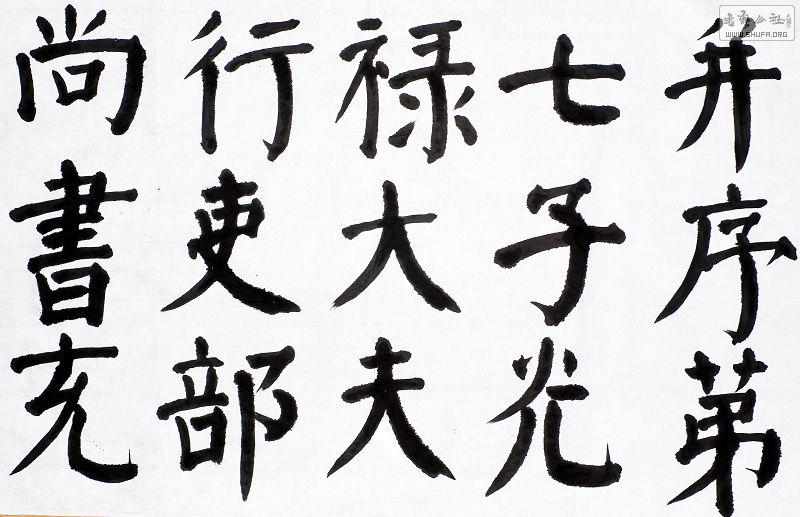 并序苐
七子光
禄大夫
行吏部
尚書充
WWW.SHUFA.ORG